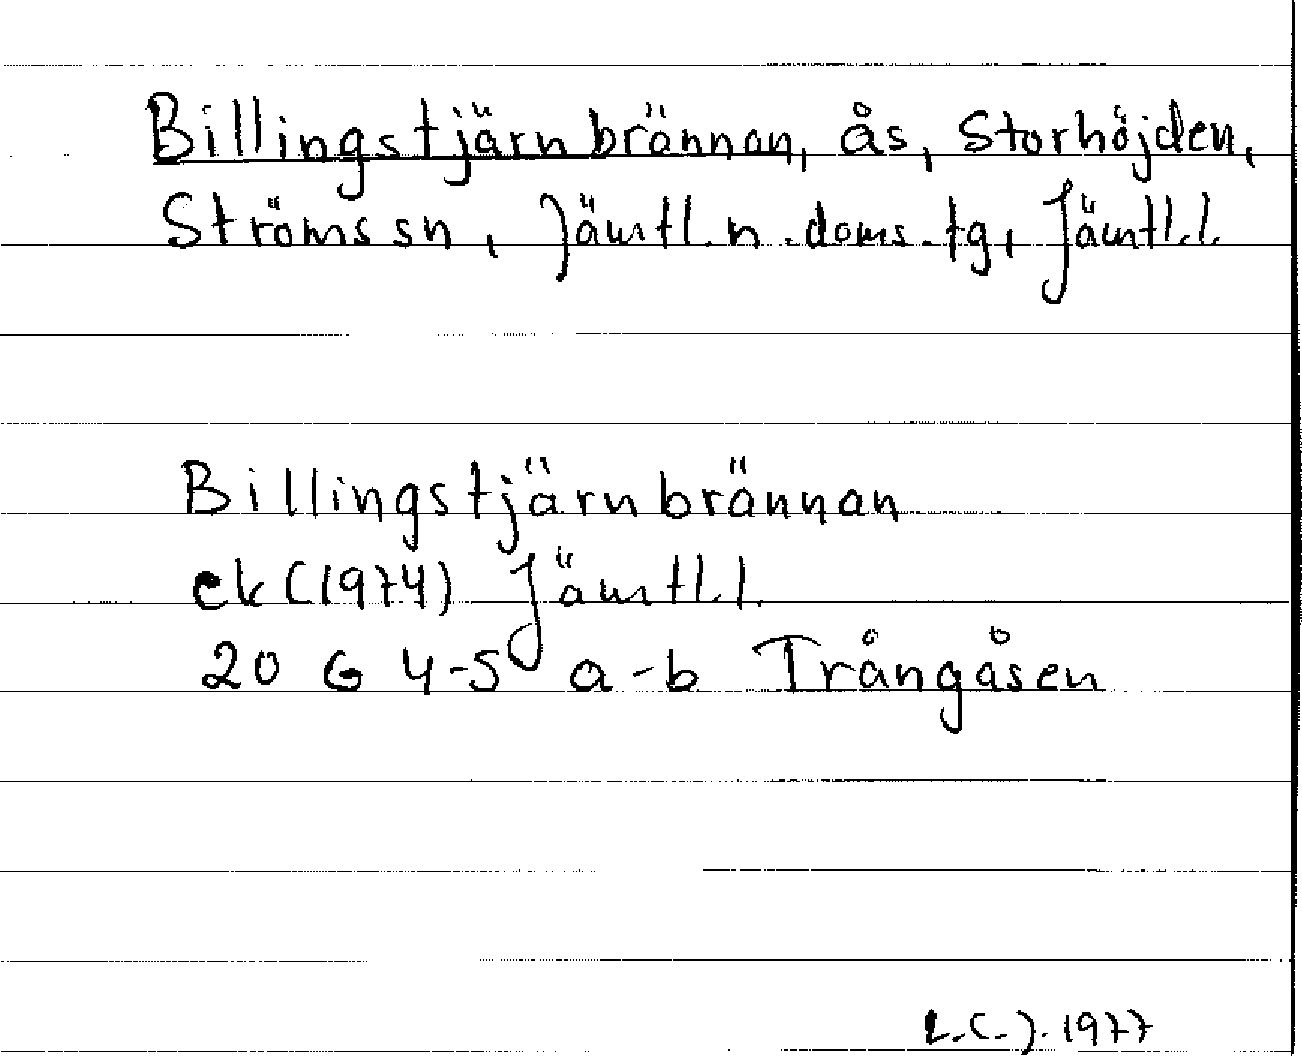 Billingstjärnbrännan, ås, Storhöjden,
Ströms sn, Jämtl. n. doms. tg, Jämtl. l.
Billingstjärnbrännan
ek (1974) Jämtl. l.
20 G 4-5 a-b Trångåsen
L.C.J. 1977